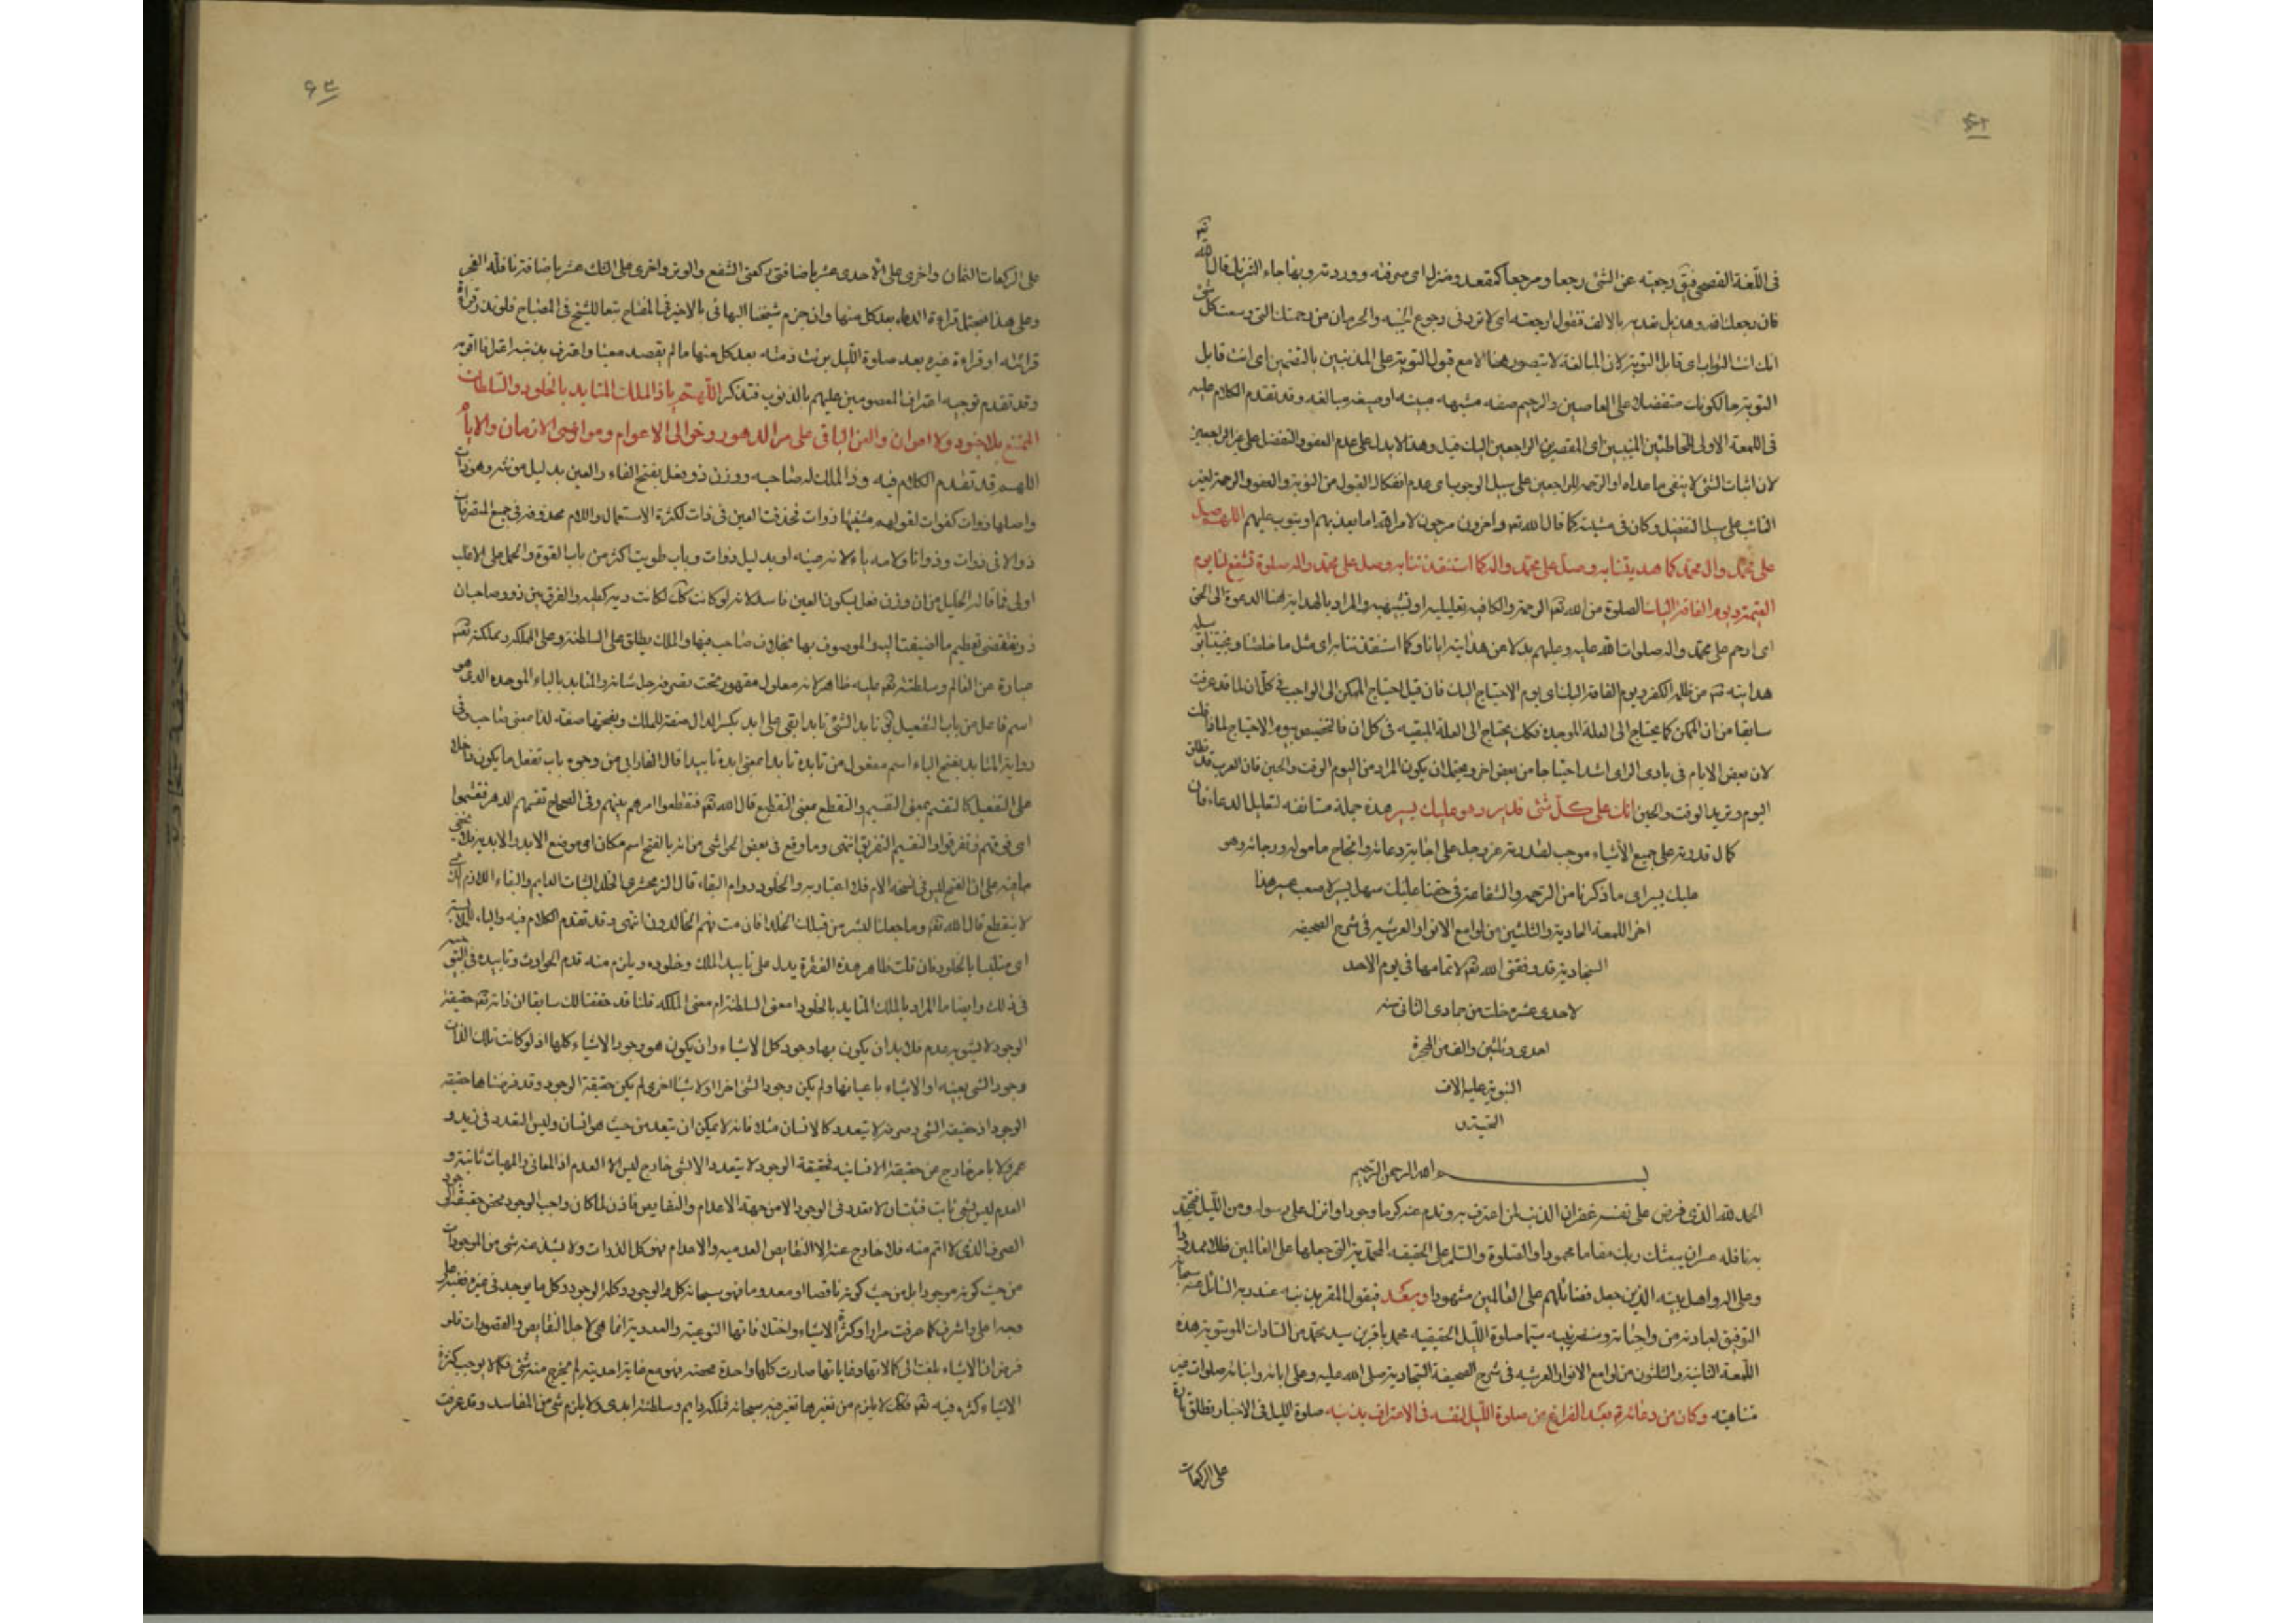 ۶۲
فى اللّغة الفصحى فيق رجعته عن الشئ رجعا ومرجعا كمقعد ومنزل اى صرفته ورددته وبها جاء التنزيل قال الله تع
فان رجعك الله وهذيل تعديه بالالف فتقول ارجعته اى لا تردنى رجوع الخيبه والحرمان من رحمتك التى وسعت كل شئ
انك انت التواب اى قابل التوبة لان المبالغة لا يتصور هنا الا مع قبول التوبة على المذنبين بالتضمين اى انت قابل
التوبة حالكونك متفضلا على العاصين والرحيم صفه مشبهه مبينه او صيغه مبالغه وقد تقدم الكلام عليه
فى اللمعة الاولى للخاطئين المنيبين اى المقصرين الراجعين اليك قيل وهذا لا يدل على عدم العفو والتفضل على غير الراجعين
لان اثبات الشئ لا ينفى ما عداه او الترحم للراجعين على سبيل الوجوب اى عدم انفكاك القبول من التوبة والعفو والرحمة لغير
التائب على سبيل التفضل وكان فى مشيئته كما قال الله تع واخرون مرجون لامر الله اما يعذبهم او يتوب عليهم اللهم صل
على محمد وال محمد كما هديتنا به وصل على محمد واله كما استنقذتنا به وصل على محمد واله صلوة تشفع لنا يوم
القيمة ويوم الفاقة اليك الصلوة من الله تع الرحمة والكاف تعليلية او تشبيهيه والمراد بالهداية هنا الدعوة الى الحق
اى ارحم على محمد واله صلوات الله عليه وعليهم بدلا من هدايته ايانا وكما استنقذتنا به اى مثل ما خلصتنا ونجيتنا بوسيله
هدايته من ظلمة الكفر ويوم الفاقة اليك اى يوم الاحتياج اليك فان قيل احتياج الممكن الى الواجب فى كل ان لما قد عرفت
سابقا من ان الممكن كما يحتاج الى العلة الموجدة فكك يحتاج الى العلة المبقيه فى كل ان فما تخصيص يوم الاحتياج بالفاقة قلت
لان بعض الايام فى بادى الراى اشد احتياجا من بعض اخر ويحتمل ان يكون المراد من اليوم الوقت والحين فان العرب قد تطلق
اليوم وتريد الوقت والحين انك على كل شئ قدير وهو عليك يسير هذه جملة مستانفه لتعليل الدعاء فان
كمال قدرته على جميع الاشياء موجب لقدرته عز وجل على اجابة دعائه وانجاح مامو له ورجائه وهو
عليك يسير اى ما ذكرنا من الرحمة والشفاعة فى حقنا عليك سهل يسير لا صعب عسير هذا
اخر اللمعة الحادية والثلثين من لوامع الانوار العرشيه فى شرح الصحيفه
السجادية قد وفقنى الله تع لاتمامها فى يوم الاحد
لاحدى عشره خلت من جمادى الثانى سنه
احدى وثلثين والف من الهجرة
النبوية عليه الاف
التحية
بسم الله الرحمن الرحيم
الحمد لله الذى فرض على نفسه غفران الذنب لمن اعترف به وندم عنه كرما وجودا وانزل على رسوله ومن الليل فتهجد
به نافلة عسى ان يبعثك ربك مقاما محمودا والصلوة والسلم على الحقيقه المحمدية التى جعلها على العالمين ظلا ممدودا
وعلى اله واهل بيته الذين جعل فضائلهم على العالمين مشهودا وبعد فيقول المقر بذنبه عند ربه السائل عنه سبحانه
التوفيق لعبادته من واجباته وسنن نبيه سيما صلوة الليل الحقيقيه محمد باقر بن سيد محمد من السادات الموسويه هذه
اللمعة الثانية والثلثون من لوامع الانوار العرشيه فى شرح الصحيفة السجادية صلى الله عليه وعلى ابائه وابنائه صلوات غير
متناهية وكان من دعائه ع بعد الفراغ من صلوة الليل لنفسه فى الاعتراف بذنبه صلوة الليل فى الاخبار تطلق تارة
على الركعات
۶۳
على الركعات الثمان واخرى على الاحدى عشر باضافتى ركعتى الشفع والوتر واخرى على الثلث عشر باضافة نافلة الفجر
وعلى هذا فيحتمل قراءة الدعاء بعد كل منها وان جزم شيخنا البهائى بالاخير فى المفتاح تبعا للشيخ فى المصباح فلو نذر قراءة
قرائته او قراءة غيره بعد صلوة الليل برئت ذمته بعد كل منها ما لم يقصد معينا واعترف بذنبه اعترافا اقر به
وقد تقدم توجيه اعتراف المعصومين عليهم بالذنوب فتذكر اللهم يا ذا الملك المتابد بالخلود والسلطان
الممتنع بلا جنود ولا اعوان والعز الباقى على مر الدهور وخوالى الاعوام ومواضى الازمان والايام
اللهم قد تقدم الكلام فيه وذا الملك له صاحبه ووزن ذو فعل بفتح الفاء والعين بدليل مونثه وهو ذات
واصلها ذوات كنوات لقولهم مثنيها ذوات فحذفت العين فى ذات لكثرة الاستعمال واللام محذوفه فى جميع المتصرفات
ذو الا فى ذوات وذواتا ولامه ياء لا نه عينه او بدليل ذوات وباب طويت اكثر من باب القوة والحمل على الاغلب
اولى فما قاله الخليل من ان وزن فعل بسكون العين فاسد لانه لو كانت كك لكانت ذيه كظبيه والفرق بين ذو وصاحب ان
ذو يقتضى تعظيم ما اضيفت اليه والموصوف بها بخلاف صاحب فيها والملك يطلق على السلطنة وعلى المملكه ومملكته تع
عبارة عن العالم وسلطنته تع عليه ظاهر لانه معلول مقهور تحت تصرفه جل شانه والمتابد بالباء الموحده الذى هو
اسم فاعل من باب التفعل يق تابد الشئ تابدا بقى على ابد بكسر الدال صفة للملك وبفتحها صفه لذا بمعنى صاحب وفى
رواية المتابد بفتح الباء اسم مفعول من تابده تابدا بمعنى ابده تابيدا قال الفارابى من وجوه باب تفعل ما يكون داخلا
على التفعيل كالتقسم بمعنى التقسيم والتقطع بمعنى التقطيع قال الله تع فتقطعوا امرهم بينهم وفى الصحاح تقسمهم الدهر فتقسموا
اى فرقهم فتفرقوا والتقسيم التفريق انتهى وما وقع فى بعض الحواشى من انه بالفتح اسم مكان اى موضع الابد والابدية فلا يخفى
ما فيه على ان الفتح ليس فى نسخه الام فلا اعتبار به والخلود دوام البقاء قال الزمخشرى الخلد الثبات الدايم والبقاء اللازم الذى
لا ينقطع قال الله تع وما جعلنا لبشر من قبلك الخلد افان مت فهم الخالدون انتهى وقد تقدم الكلام فيه والباء للملابسة
اى متلبسا بالخلود فان قلت ظاهر هذه الفقرة يدل على تابيد الملك وخلوده ويلزم منه قدم الحوادث وتابيده
فى ذلك وايضا ما المراد بالملك المتابد بالخلود امعنى السلطنة ام معنى المملكه قلنا قد حققنا لك سابقا ان ذاته تع حقيقة
الوجود لا يشوبه عدم فلا بد ان يكون بها وجود كل الاشياء وان يكون هو وجود الاشياء كلها اذ لو كانت تلك الذات
وجود الشئ بعينه او الاشياء باعيانها ولم يكن وجود الشئ اخر او لاشياء اخرى لم يكن حقيقة الوجود وقد فرضناها حقيقة
الوجود اذ حقيقة الشئ وصرفه لا يتعدد كالانسان مثلا فانه لا يمكن ان يتعدد من حيث هو انسان وليس التعدد فى زيد و
عمرو الا بامر خارج عن حقيقة الانسانيه فحقيقة الوجود لا يتعدد الا لشئ خارج ليس الا العدم اذ المعانى والمهيات ثابتة و
العدم ليس بشئ ثابت فثبت ان لا تعدد فى الوجود الا من جهة الاعدام والنقايص فاذن لما كان واجب الوجود محض حقيقة الوجود
الصرف الذى لا اتم منه فلا خارج عنه الا النقايص العدميه والاعدام فهو كل الذوات ولا يشذ عنه شئ من الموجودات
من حيث كونه موجودا بل من حيث كونه ناقصا او معدوما فهو سبحانه كل الوجود وكله الوجود وكل ما يوجد فى غيره ففيه على
وجه اعلى واشرف كما عرفت مرارا وكثرة الاشياء واختلافاتها النوعية والعددية انما هى لاجل النقايص والقصورات فلو
فرض ان الاشياء بلغت الى كمالاتها وغاياتها صارت كلها واحدة محضه فهو مع غاية احديته لم يخرج منه شئ فكما لا يوجب كثرة
الاشياء كثرة فيه تع فكك لا يلزم من تغيرها تغير فيه سبحانه فملكه دايم وسلطنته ابدى ولا يلزم شئ من المفاسد وقد عرفت